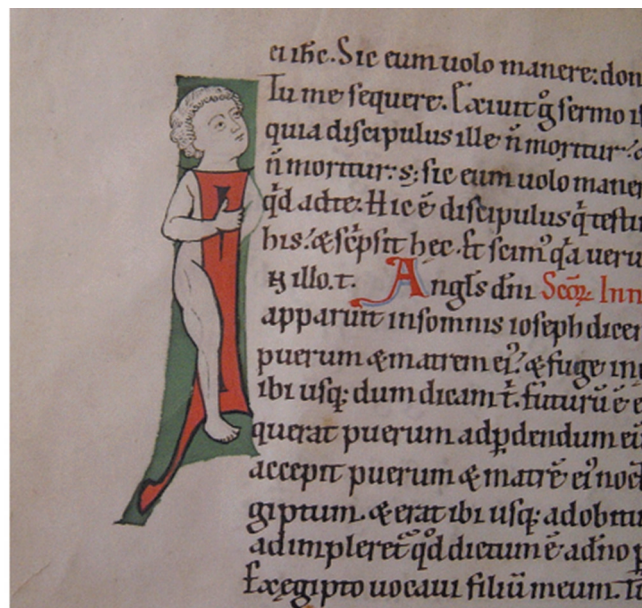 ei ihc. Sic eum uolo manere: don
Tu me sequere. Exiuit g̊ sermo is
quia discipulus ille n̄ moritur. &
n̄ moritur: s; sic eum uolo maner
qd̓ ad te. Hic ē discipulus q̓ testi
his. & sc̓psit hęc. Et scim᷒ q̓a ueru
illo. t. Angl̓s dn̄i Sc̄oꝝ Inn
apparuit in somnis ioseph dicen
puerum & matrem ei᷒. & fuge in
ibi usq; dum dicam t̓. futurū ē e
querat puerum ad ꝑdendum eū
accepit puerum & matrē ei᷒ noct
giptum. & erat ibi usq; ad obitu
ad impleret̓ qd̓ dictum ē a dn̄o p
Ex ęgipto uocaui filiū meum. T